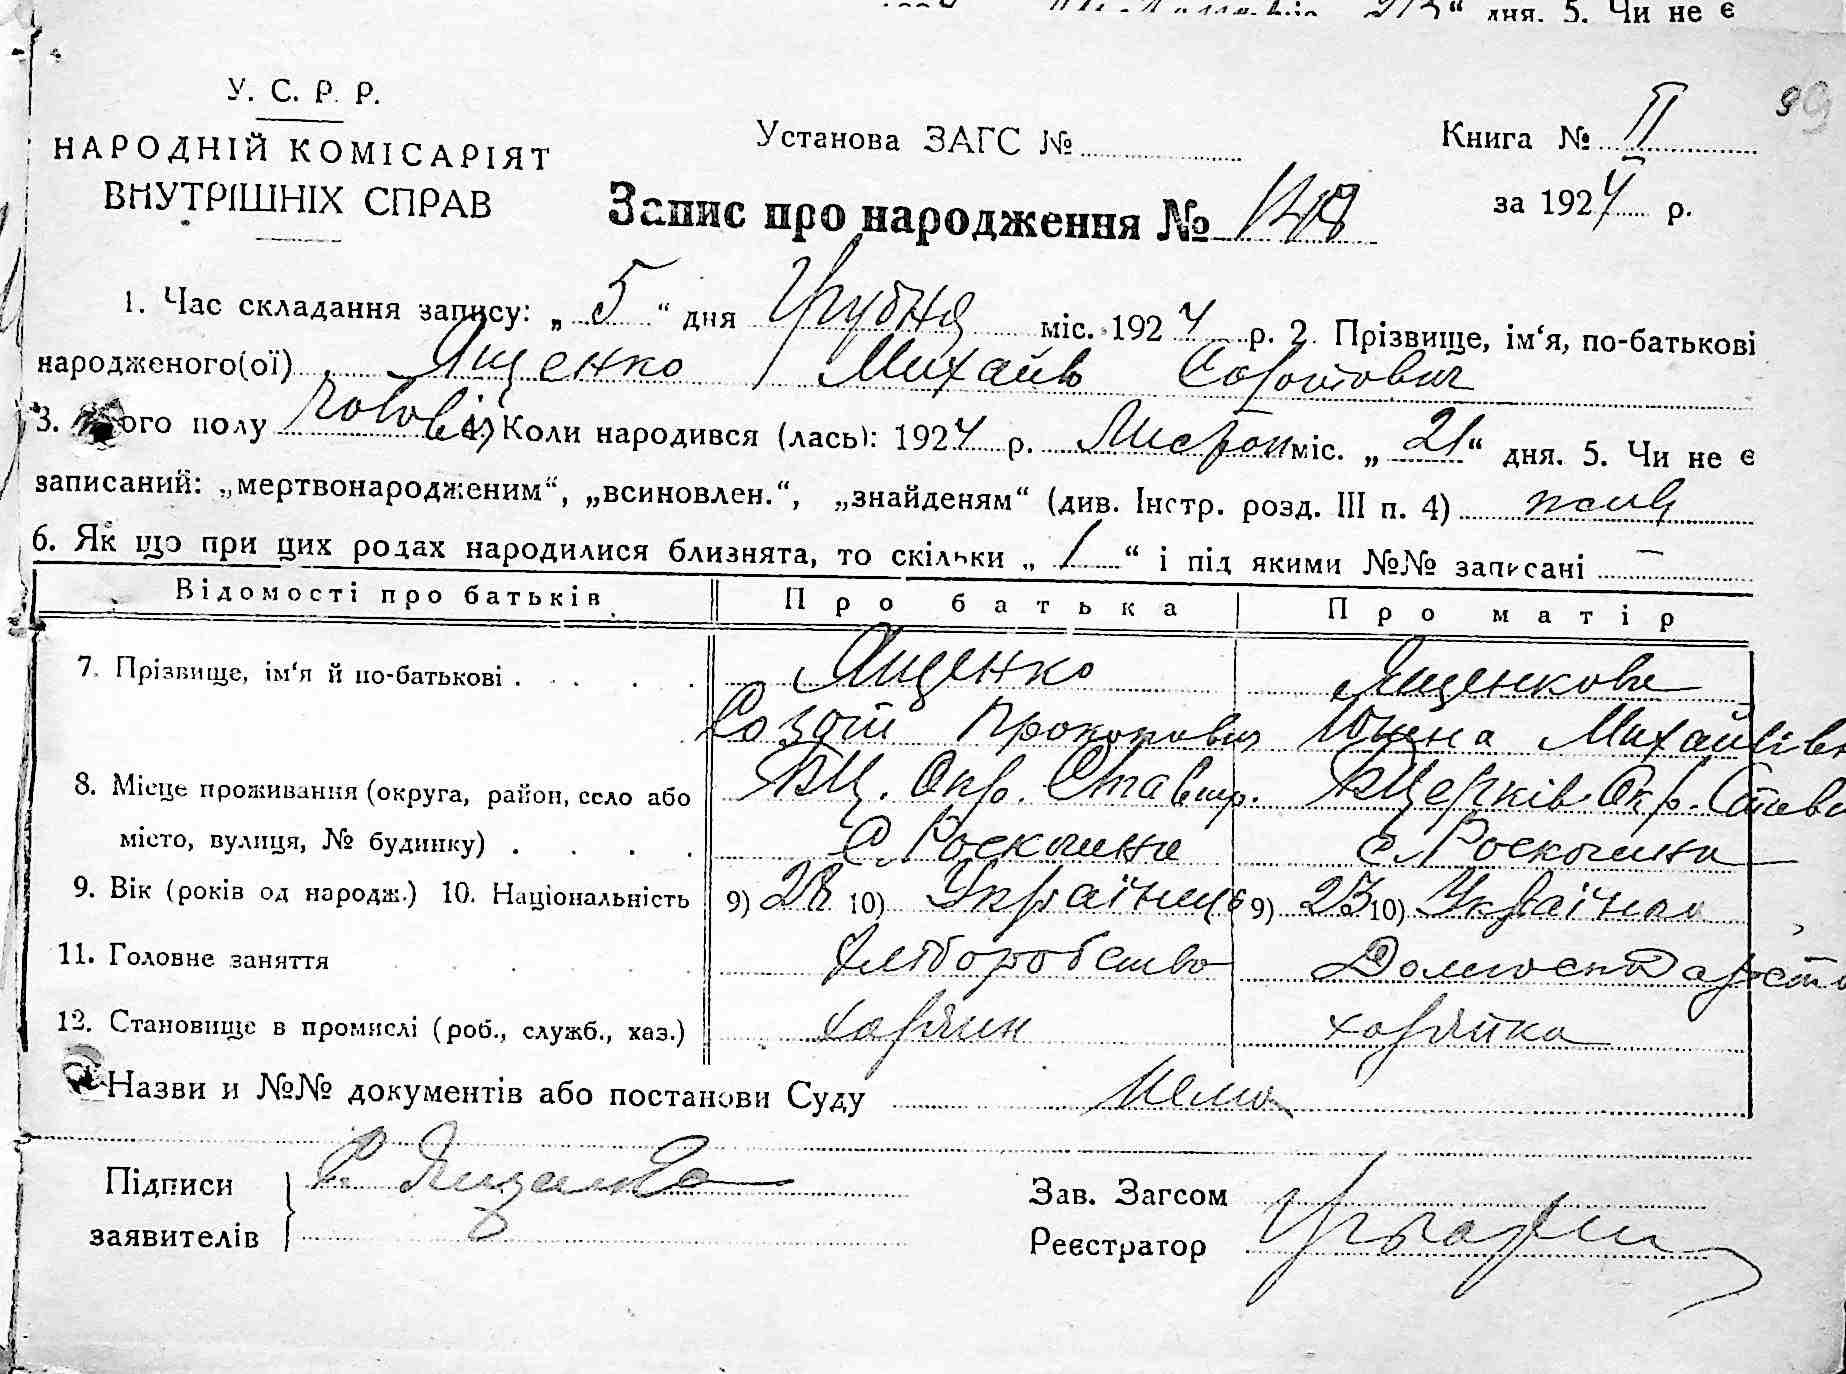 дня. 5. Чи не є
У. С. Р. Р.
НАРОДНІЙ КОМІСАРІЯТ
ВНУТРІШНІХ СПРАВ
Установа ЗАГС №
Книга № II
за 1924 р.
Запис про народження №
1. Час складання запису: „ 5 “ дня Грудня міс. 1924 р. 2. Прізвище, ім‘я, по-батькові
народженого(ої) Ященко Михайло Созонтович
3. ого полу чоловіч. 4. Коли народився (лась): 1924 р. Листопа міс. „ 21 “ дня. 5. Чи не є
записаний: „мертвонародженим“, „всиновлен.“, „знайденям“ (див. Інстр. розд. III п. 4)
6. Як що при цих родах народилися близнята, то скільки „ 1 “ і під якими №№ записані —
Відомості про батьків Про батька Про матір
7. Прізвище, ім‘я й по-батькові . . . . . Ященко Ященкова
Созонт Прокопович Михайлівн
8. Місце проживання (округа, район, село або БЦ. Окр. Ставищ. БЦерків Окр. Стави
місто, вулиця, № будинку) . . . . с. Роскошна с. Роскошна
9. Вік (років од народж.) 10. Національність 9) 28 10) Українець 9) 23 10) Українка
11. Головне заняття Хліборобство Домгосподарство
12. Становище в промислі (роб., служб., хаз.) хазяин хазяйка
Назви и №№ документів або постанови Суду Нема
Підписи
заявителів
С. Ященко
Зав. Загсом
Реєстратор